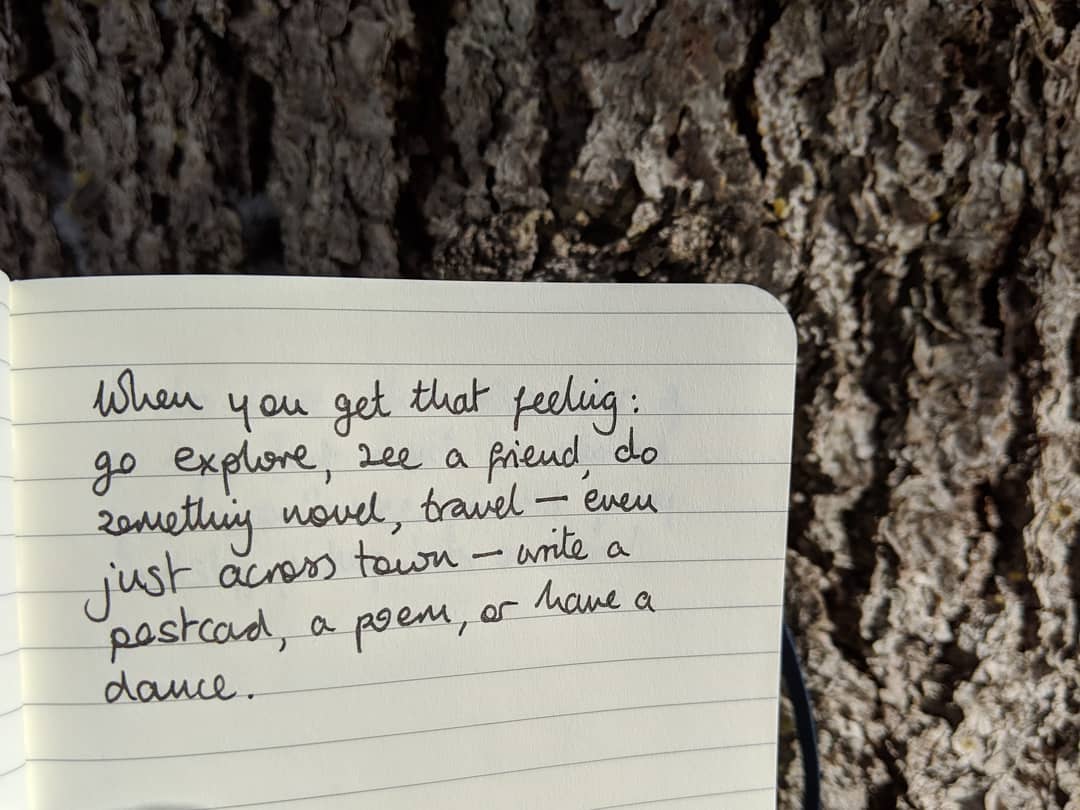 When you get that feeling:
go explore, see a friend, do
something novel, travel — even
just across town — write a
postcad, a poem, or have a
dance.